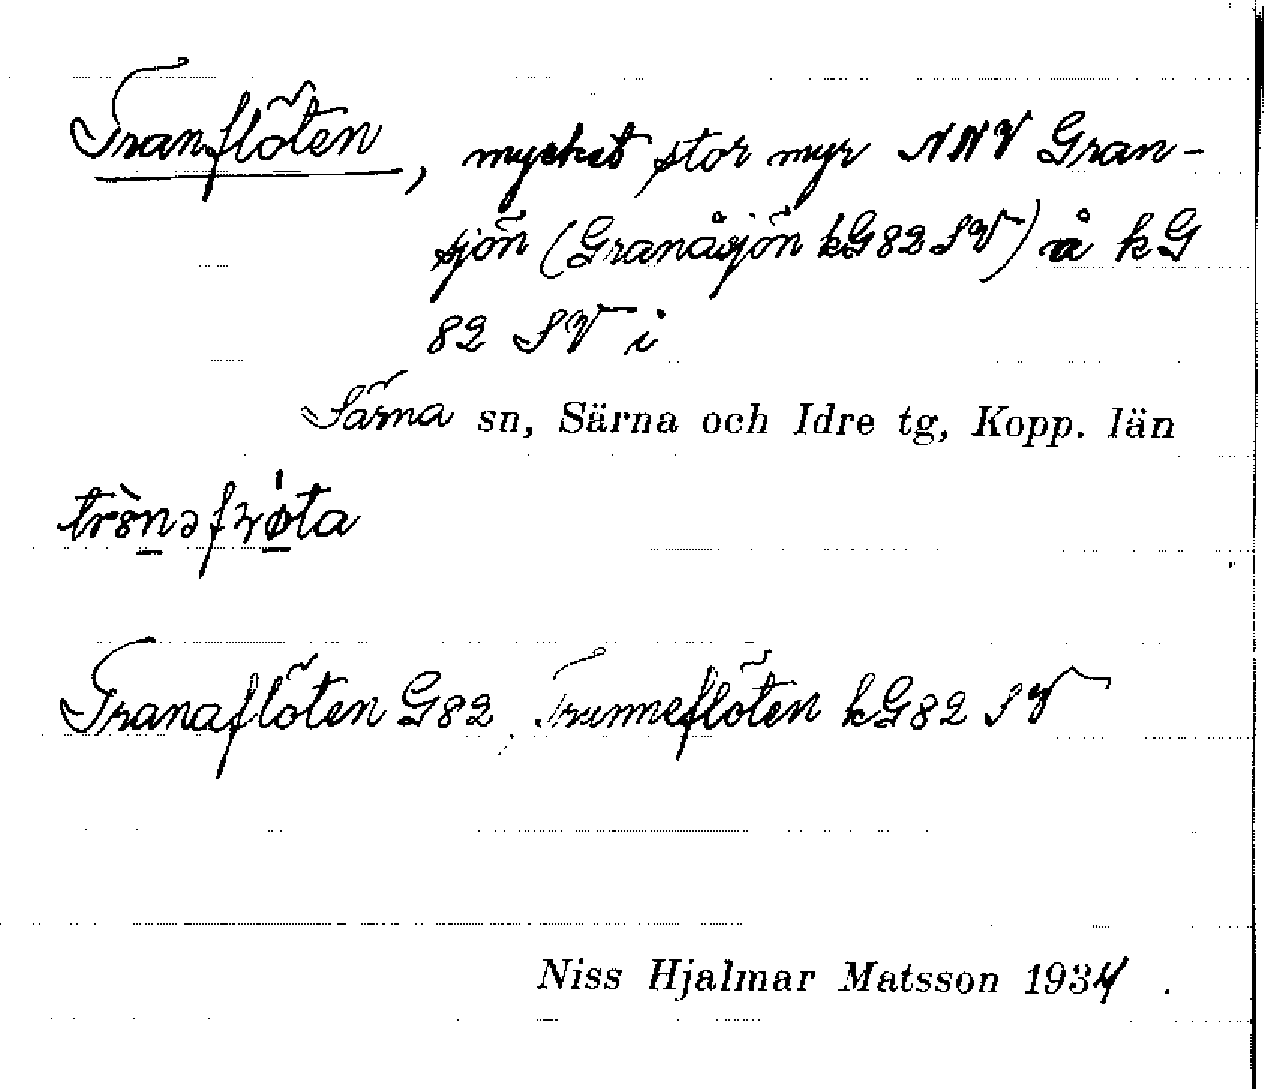 Tranflöten, mycket stor myr NNV Gran-
sjön (Granåsjön kG82SV) å kG
82 SV i
Särna sn, Särna och Idre tg, Kopp. län
Tranaflöten G82, Trunneflöten kG82 SV
Niss Hjalmar Matsson 1934.